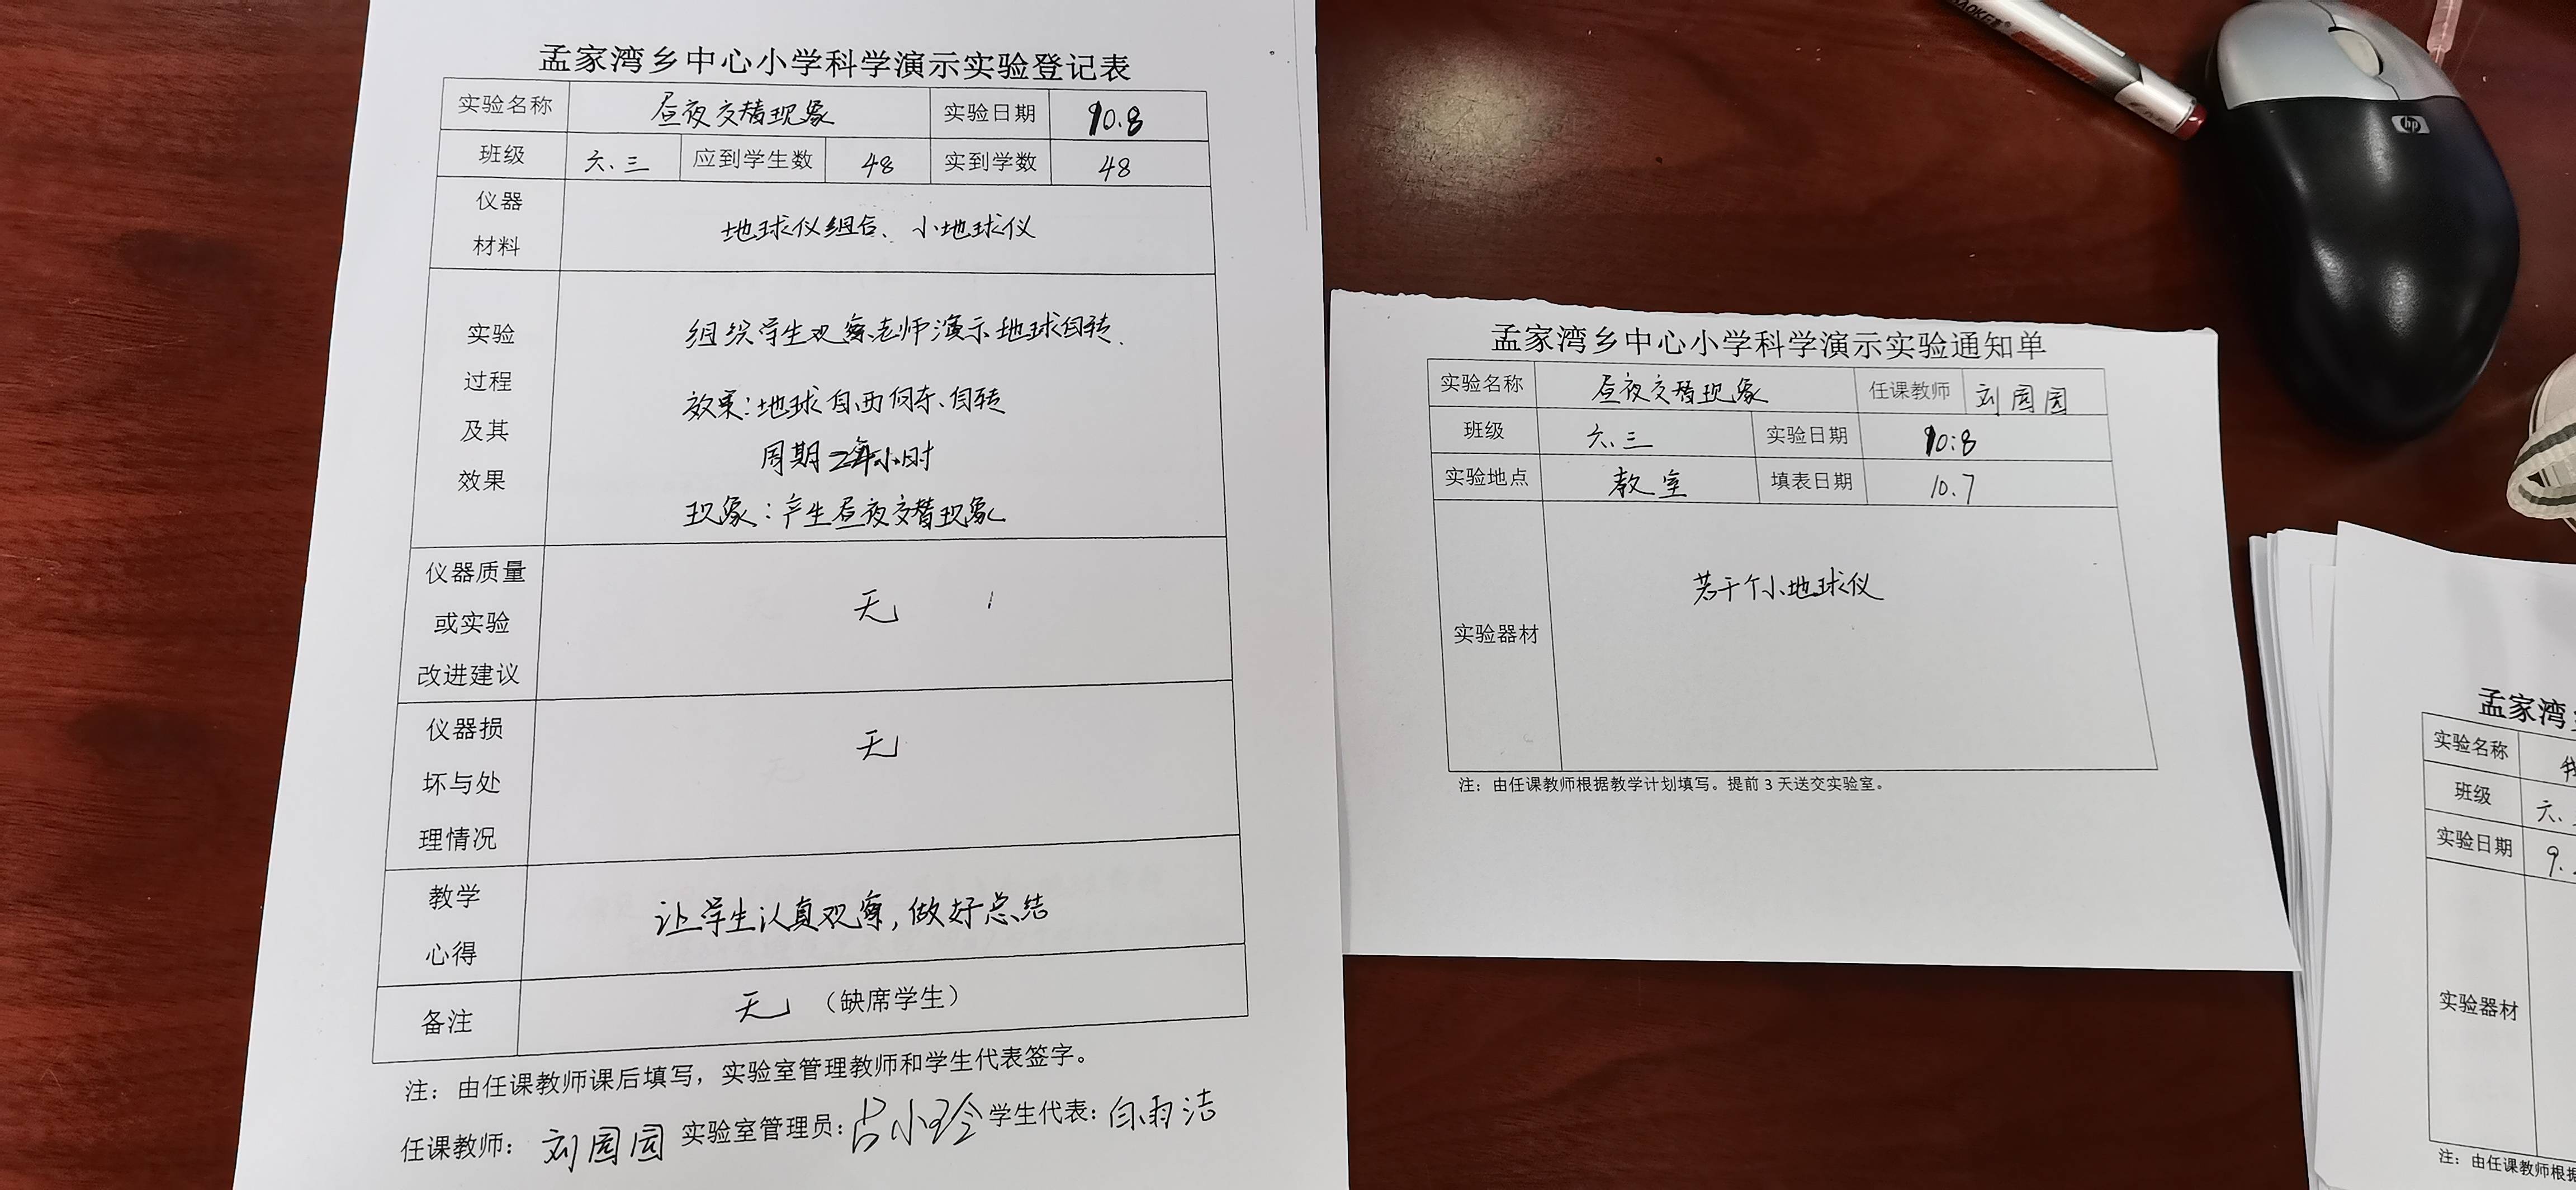 孟家湾乡中心小学科学演示实验登记表
实验名称 昼夜交替现象 实验日期 10.8
班级 六.三 应到学生数 48 实到学数 48
仪器
材料
地球仪组合、小地球仪
实验
过程
及其
效果
组织学生观察老师演示地球自转.
效果:地球自西向东自转
周期24小时
现象:产生昼夜交替现象
仪器质量
或实验
改进建议
无
仪器损
坏与处
理情况
无
教学
心得
让学生认真观察,做好总结
备注 无 (缺席学生)
注：由任课教师课后填写，实验室管理教师和学生代表签字。
任课教师： 刘园园 实验室管理员: 学生代表: 白雨洁
孟家湾乡中心小学科学演示实验通知单
实验名称 昼夜交替现象 任课教师 刘园园
班级 六.三 实验日期 10.8
实验地点 教室 填表日期 10.7
实验器材 若干个小地球仪
注：由任课教师根据教学计划填写。提前 3 天送交实验室。
孟家湾
实验名称
班级 六.
实验日期 9.
实验器材
注：由任课教师根据
hp